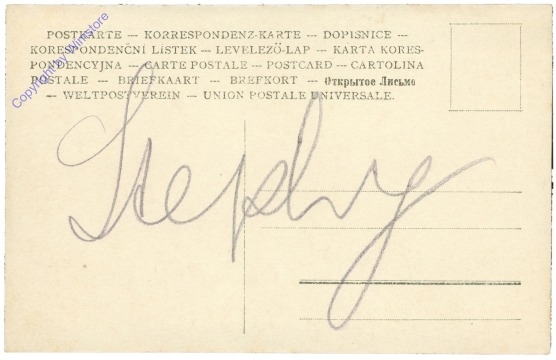 POSTKARTE — KORRESPONDENZ-KARTE — DOPISNICE —
KORESPONDENČNÍ LÍSTEK — LEVELEZŐ-LAP — KARTA KORES-
PONDENCYJNA — CARTE POSTALE — POSTCARD — CARTOLINA
POSTALE — BRIEFKAART — BREFKORT — Открытое Письмо
— WELTPOSTVEREIN — UNION POSTALE UNIVERSALE.
Copyright by Winistore